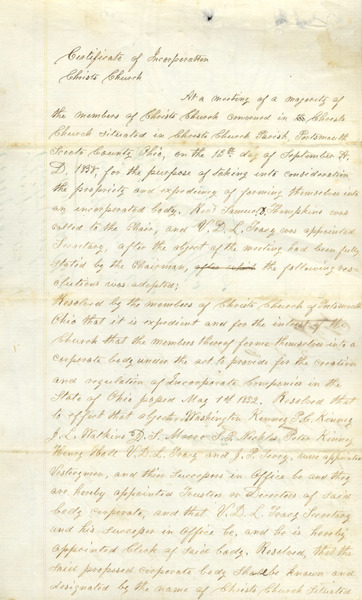 Certificate of Incorporation
Christs Church
At a meeting of a majority of
the members of Christs Church convened in Christs
Church situated in Christs Church Parish, Portsmouth
Scioto County, Ohio, on the 15th day of September A.
D. 1858, for the purpose of taking into consideration
the propriety and expediency of forming themselves into
an incorporated body. Revd Samuel Thompkins was
called to the Chair, and V. D. L. Tracy was appointed
Secretary, after the object of the meeting had been fully
stated by the Chairman, after which the following res-
olutions was adopted;
Resolved by the members of Christs Church of Portsmouth
Ohio that it is expedient and for the interest of the
Church that the members thereof forme themselves into a
corporate body under the act to provide for the creation
and regulation of Incorporate Companies in the
State of Ohio passed May 1st 1852. Resolved that
to effect that object Washington Kinney P. C. Kinney
J. L. Watkins D. S. Moore Peter Kinney
Henry Hall V. D. L. Tracy and J. P. Terry, were appointed
Vestrymen, and thir Successors in Office be and they
are hereby appointed Trustees or Directors of said
body corporate, and that V. D. L. Tracy Secretary
and his successor in Office be, and he is hereby
appointed Clerk of said body. Resolved, that the
said proposed corporate body shall be known and
designated by the name of Christs Church situated